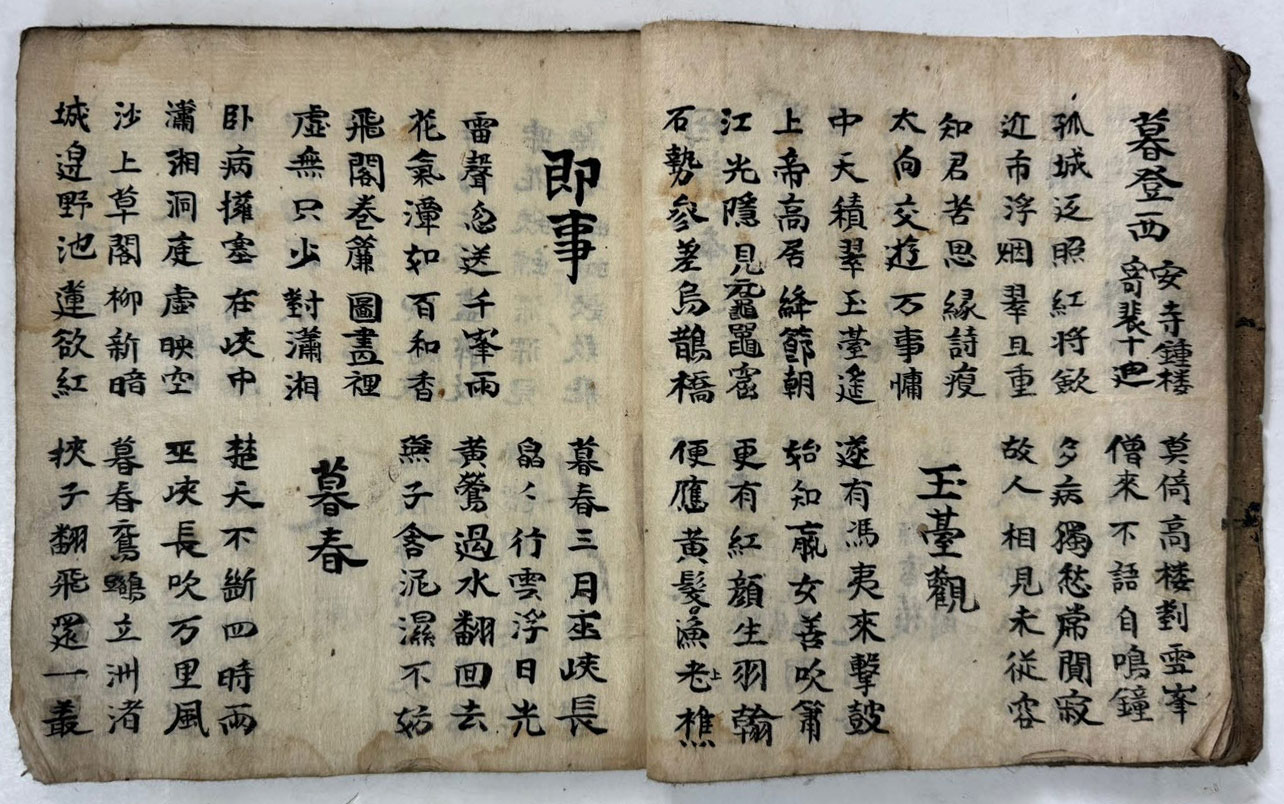 暮登西安寺鐘楼寄裴十迪
莫倚高楼對霊峯
僧來不語自鳴鐘
孤城返照紅將歛
近市浮烟翠且重
多病獨愁常閴寂
故人相見未從容
知君苦思緣詩瘦
太向交遊万事慵
玉臺觀
中天積翠玉臺遙
上帝高居絳節朝
遂有馮夷來擊鼓
始知嬴女善吹簫
江光隱見黿鼉窟
石勢參差烏鵲橋
更有紅顔生羽翰
便應黄髮漁老樵
即事
暮春三月巫峽長
皛々行雲浮日光
雷聲忽送千峯雨
花氣渾如百和香
黄鶯過水翻回去
燕子含泥濕不妨
飛閣卷簾圖畫裡
虛無只少對瀟湘
暮春
卧病擁塞在峽中
瀟湘洞庭虛映空
楚天不斷四時雨
巫峽長吹万里風
沙上草閣柳新暗
城邊野池蓮欲紅
暮春鴛鷺立洲渚
挾子翻飛還一叢